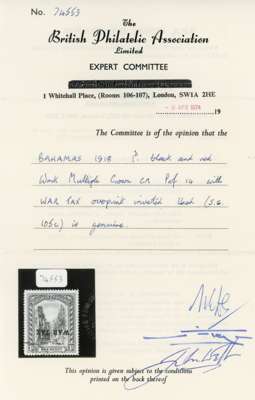 No. 74553
The
British Philatelic Association
Limited
EXPERT COMMITTEE
1 Whitehall Place, (Rooms 106-107), London, SW1A 2HE
APR 1974
19
The Committee is of the opinion that the
BAHAMAS 1918 1d. black and red
Wmk Multiple Crown CA Perf 14 with
WAR TAX overprint inverted Used (S.G.
) is genuine.
74553
WAR TAX
This opinion is given subject to the conditions
printed on the back thereof